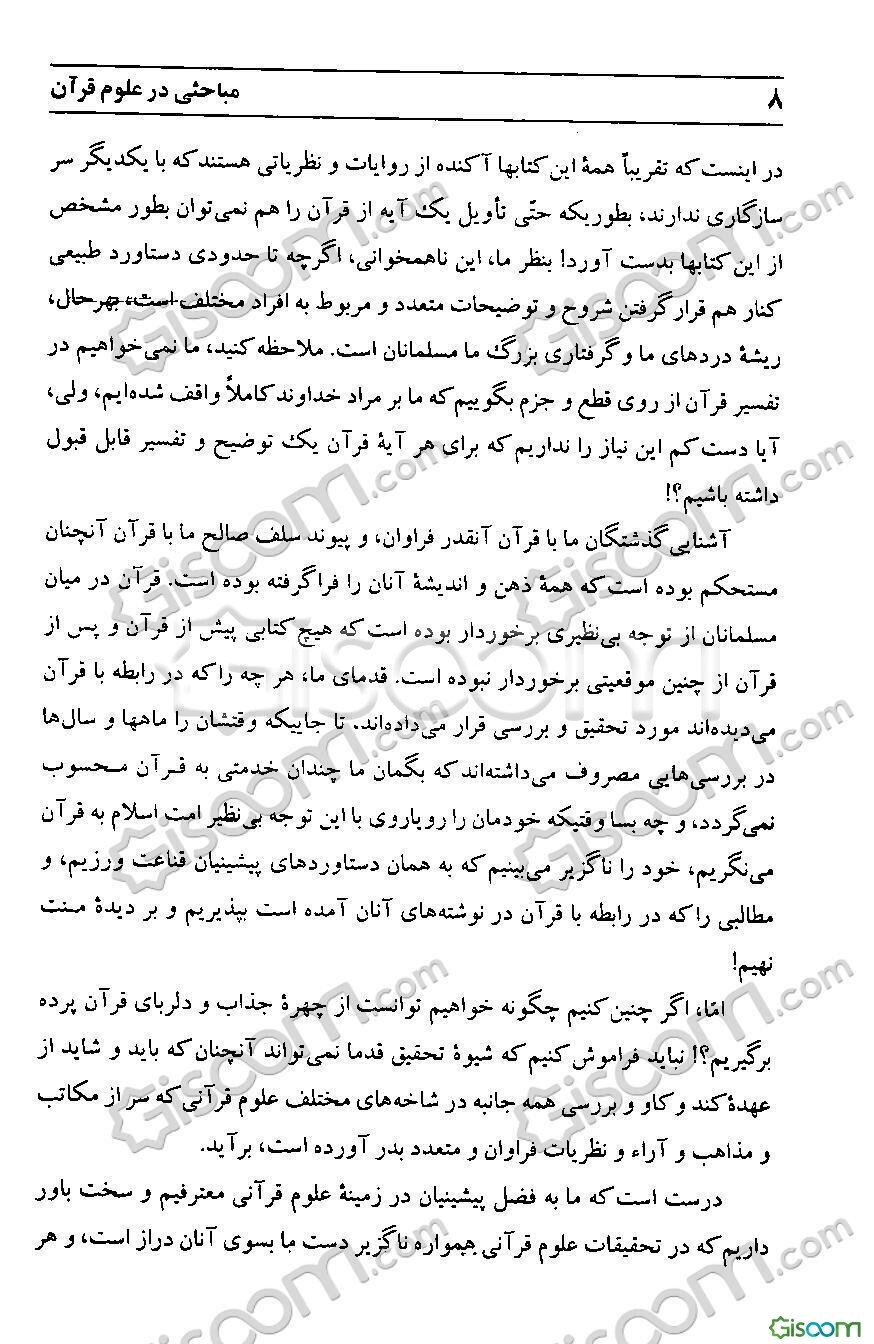 ۸ مباحثی در علوم قرآن
در اینست که تقریباً همهٔ این کتابها آکنده از روایات و نظریاتی هستند که با یکدیگر سر
سازگاری ندارند، بطوریکه حتّی تأویل یک آیه از قرآن را هم نمی‌توان بطور مشخص
از این کتابها بدست آورد! بنظر ما، این ناهمخوانی، اگرچه تا حدودی دستاورد طبیعی
کنار هم قرار گرفتن شروح و توضیحات متعدد و مربوط به افراد مختلف است، بهرحال،
ریشهٔ دردهای ما و گرفتاری بزرگ ما مسلمانان است. ملاحظه کنید، ما نمی‌خواهیم در
تفسیر قرآن از روی قطع و جزم بگوییم که ما بر مراد خداوند کاملاً واقف شده‌ایم، ولی،
آیا دست کم این نیاز را نداریم که برای هر آیهٔ قرآن یک توضیح و تفسیر قابل قبول
داشته باشیم؟!
آشنایی گذشتگان ما با قرآن آنقدر فراوان، و پیوند سلف صالح ما با قرآن آنچنان
مستحکم بوده است که همهٔ ذهن و اندیشهٔ آنان را فراگرفته بوده است. قرآن در میان
مسلمانان از توجه بی‌نظیری برخوردار بوده است که هیچ کتابی پیش از قرآن و پس از
قرآن از چنین موقعیتی برخوردار نبوده است. قدمای ما، هر چه را که در رابطه با قرآن
می‌دیده‌اند مورد تحقیق و بررسی قرار می‌داده‌اند. تا جاییکه وقتشان را ماهها و سال‌ها
در بررسی‌هایی مصروف می‌داشته‌اند که بگمان ما چندان خدمتی به قرآن محسوب
نمی‌گردد، و چه بسا وقتیکه خودمان را رویاروی با این توجه بی‌نظیر امت اسلام به قرآن
می‌نگریم، خود را ناگزیر می‌بینیم که به همان دستاوردهای پیشینیان قناعت ورزیم، و
مطالبی را که در رابطه با قرآن در نوشته‌های آنان آمده است بپذیریم و بر دیدهٔ منت
نهیم!
امّا، اگر چنین کنیم چگونه خواهیم توانست از چهرهٔ جذاب و دلربای قرآن پرده
برگیریم؟! نباید فراموش کنیم که شیوهٔ تحقیق قدما نمی‌تواند آنچنان که باید و شاید از
عهدهٔ کند و کاو و بررسی همه جانبه در شاخه‌های مختلف علوم قرآنی که سر از مکاتب
و مذاهب و آراء و نظریات فراوان و متعدد بدر آورده است، برآید.
درست است که ما به فضل پیشینیان در زمینهٔ علوم قرآنی معترفیم و سخت باور
داریم که در تحقیقات علوم قرآنی همواره ناگزیر دست ما بسوی آنان دراز است، و هر
Gisoom.com
Gisoom